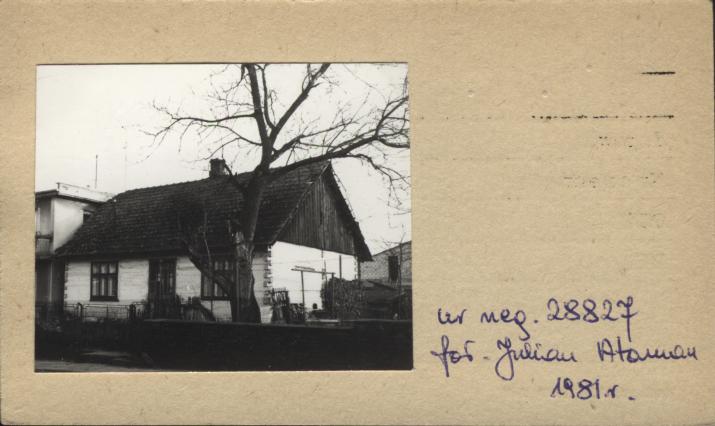 nr neg. 28827
fot. Julian Ataman
1981 r.